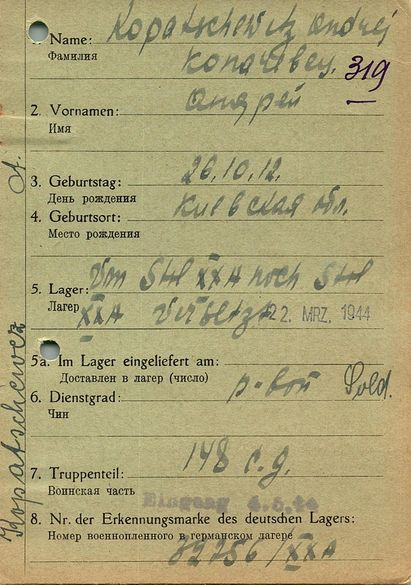 Kopatschewitz Andrej
1. Name:
Фамилия
Копачевич
319
2. Vornamen:
Андрей
Имя
3. Geburtstag: 26.10.12.
День рождения
4. Geburtsort: Киевская обл.
Место рождения
5. Lager: Von Stal XXA nach Stal
Лагер XXA 22. MRZ. 1944
5a. Im Lager eingeliefert am:
Доставлен в лагер (число)
6. Dienstgrad: р-вой Sold.
Чин
7. Truppenteil: 148 с.д.
Воинская часть
Eingang
8. Nr. der Erkennungsmarke des deutschen Lagers:
Номер военнопленного в германском лагере
82756/XXA
Kopatschewitz A.